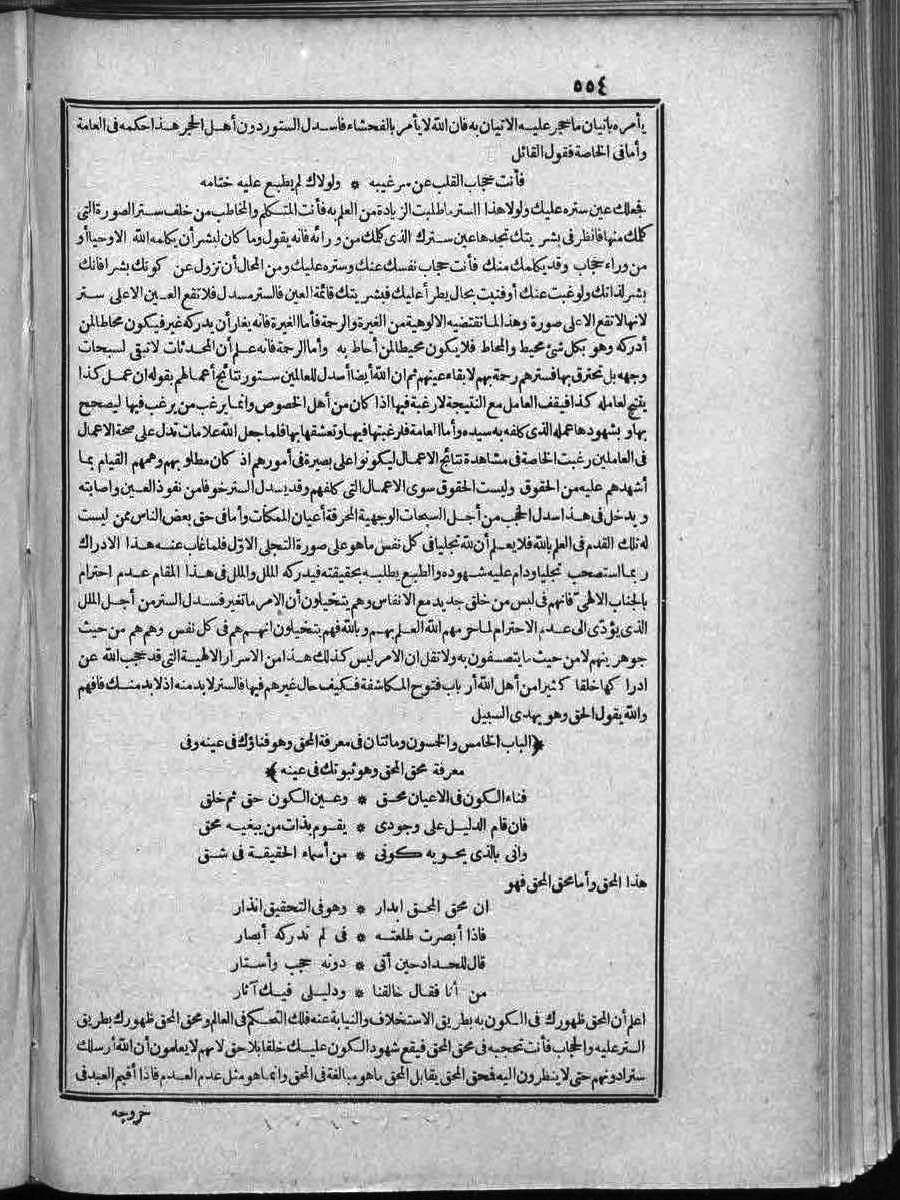 ٥٥٤
يأمره باتيان ما حجر عليه الاتيان به فان الله لا يأمر بالفحشاء فاسدل الستور دون أهل الحجر هذا حكمه فى العامة
وأما فى الخاصة فقول القائل
فأنت حجاب القلب عن سر غيبه * ولولاك لم يطبع عليه ختامه
فجعلك عين ستره عليك ولولا هذا الستر ما طلبت الزيادة من العلم به فأنت المتكلم والمخاطب من خلف ستر الصورة التى
كلمك منها فانظر فى بشريتك تجدها عين سترك الذى كلمك من ورائه فانه يقول وما كان لبشر أن يكلمه الله الا وحيا أو
من وراء حجاب وقد يكلمك منك فأنت حجاب نفسك عنك وستره عليك ومن المحال أن تزول عن كونك بشرا فانك
بشر لذاتك ولو غبت عنك أو فنيت بحال يطرأ عليك فبشريتك قائمة العين فالستر مسدل فلا تقع العين الا على ستر
لانها لا تقع الا على صورة وهذا لما تقتضيه الالوهية من الغيرة والرحمة فأما الغيرة فانه يغار أن يدركه غير فيكون محاطا لمن
أدركه وهو بكل شئ محيط والمحاط فلا يكون محيطا لمن أحاط به وأما الرحمة فانه علم أن المحدثات لا تبقى لسبحات
وجهه بل تحترق بها فسترهم رحمة بهم لابقاء عينهم ثم ان الله أيضا أسدل للعالمين ستور نتائج أعمالهم بقوله ان عمل كذا
ينتج لعامله كذا فيقف العامل مع النتيجة لا رغبة فيها اذا كان من أهل الخصوص وانما يرغب من يرغب فيها ليصحح
بها وبشهودها عمله الذى كلفه به سيده وأما العامة فلرغبتها فيها وتعشقها بها فلما جعل الله علامات تدل على صحة الاعمال
فى العاملين رغبت الخاصة فى مشاهدة نتائج الاعمال ليكونوا على بصيرة فى أمورهم اذ كان مطلوبهم وهمهم القيام بما
أشهدهم عليه من الحقوق وليست الحقوق سوى الاعمال التى كلفهم وقد يسدل الستر خوفا من نفوذ العين واصابته
ويدخل فى هذا سدل الحجب من أجل السبحات الوجهية المحرقة أعيان الممكنات وأما فى حق بعض الناس ممن ليست
له تلك القدم فى العلم بالله فلا يعلم أن لله تجليا فى كل نفس ما هو على صورة التجلى الاوّل فلما غاب عنه هذا الادراك
ربما استصحب تجليا ودام عليه شهوده والطبع يطلبه بحقيقته فيدركه الملل والملل فى هذا المقام عدم احترام
بالجناب الالهىّ فانهم فى لبس من خلق جديد مع الانفاس وهم يتخيلون أن الامر ما تغير فسدل الستر من أجل الملل
الذى يؤدّى الى عدم الاحترام لما حرمهم الله العلم بهم وبالله فهم يتخيلون انهم هم فى كل نفس وهم هم من حيث
جوهريتهم لا من حيث ما يتصفون به ولا تقل ان الامر ليس كذلك هذا من الاسرار الالهية التى قد حجب الله عن
ادراكها خلقا كثيرا من أهل الله أرباب فتوح المكاشفة فكيف حال غيرهم فيها فالستر لا بد منه اذ لا بد منك فافهم
والله يقول الحق وهو يهدى السبيل
﴿الباب الخامس والخمسون ومائتان فى معرفة المحق وهو فناؤك فى عينه وفى
معرفة محق المحق وهو ثبوتك فى عينه﴾
فناء الكون فى الاعيان محق * وعين الكون حق ثم خلق
فان قام الدليل على وجودى * يقوم بذات من يبغيه محق
وانى بالذى يحويه كونى * من أسماء الحقيقة فى شق
هذا المحق وأما محق المحق فهو
ان محق المحق ابدار * وهو فى التحقيق انذار
فاذا أبصرت طلعته * فى لم تدركه أبصار
قال للحداد حين أتى * دونه حجب وأستار
من أنا فقال خالقنا * ودليلى فيك آثار
اعلم أن المحق ظهورك فى الكون به بطريق الاستخلاف والنيابة عنه فلك التحكم فى العالم ومحق المحق ظهورك بطريق
الستر عليه والحجاب فأنت تحجبه فى محق المحق فيقع شهود الكون عليك خلقا بلا حق لانهم لا يعلمون أن الله أرسلك
سترا دونهم حتى لا ينظرون اليه فمحق المحق يقابل المحق ما هو مبالغة فى المحق وانما هو مثل عدم العدم فاذا أقيم العبد فى
خروجه